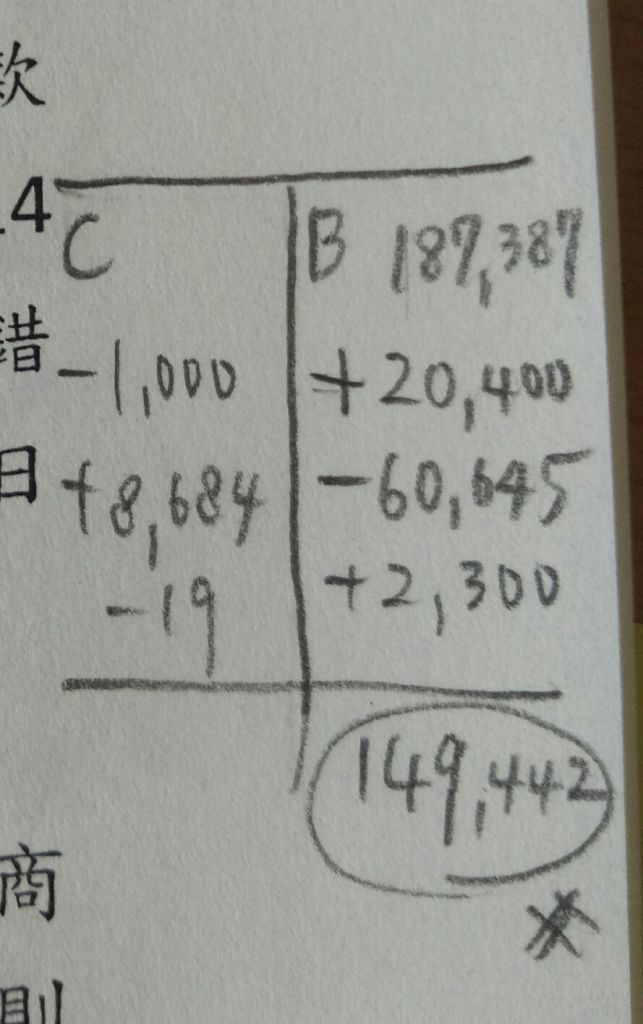 款
.4
錯
日
C B 187,387
-1,000 +20,400
+8,684 -60,645
-19 +2,300
149,442
商
則